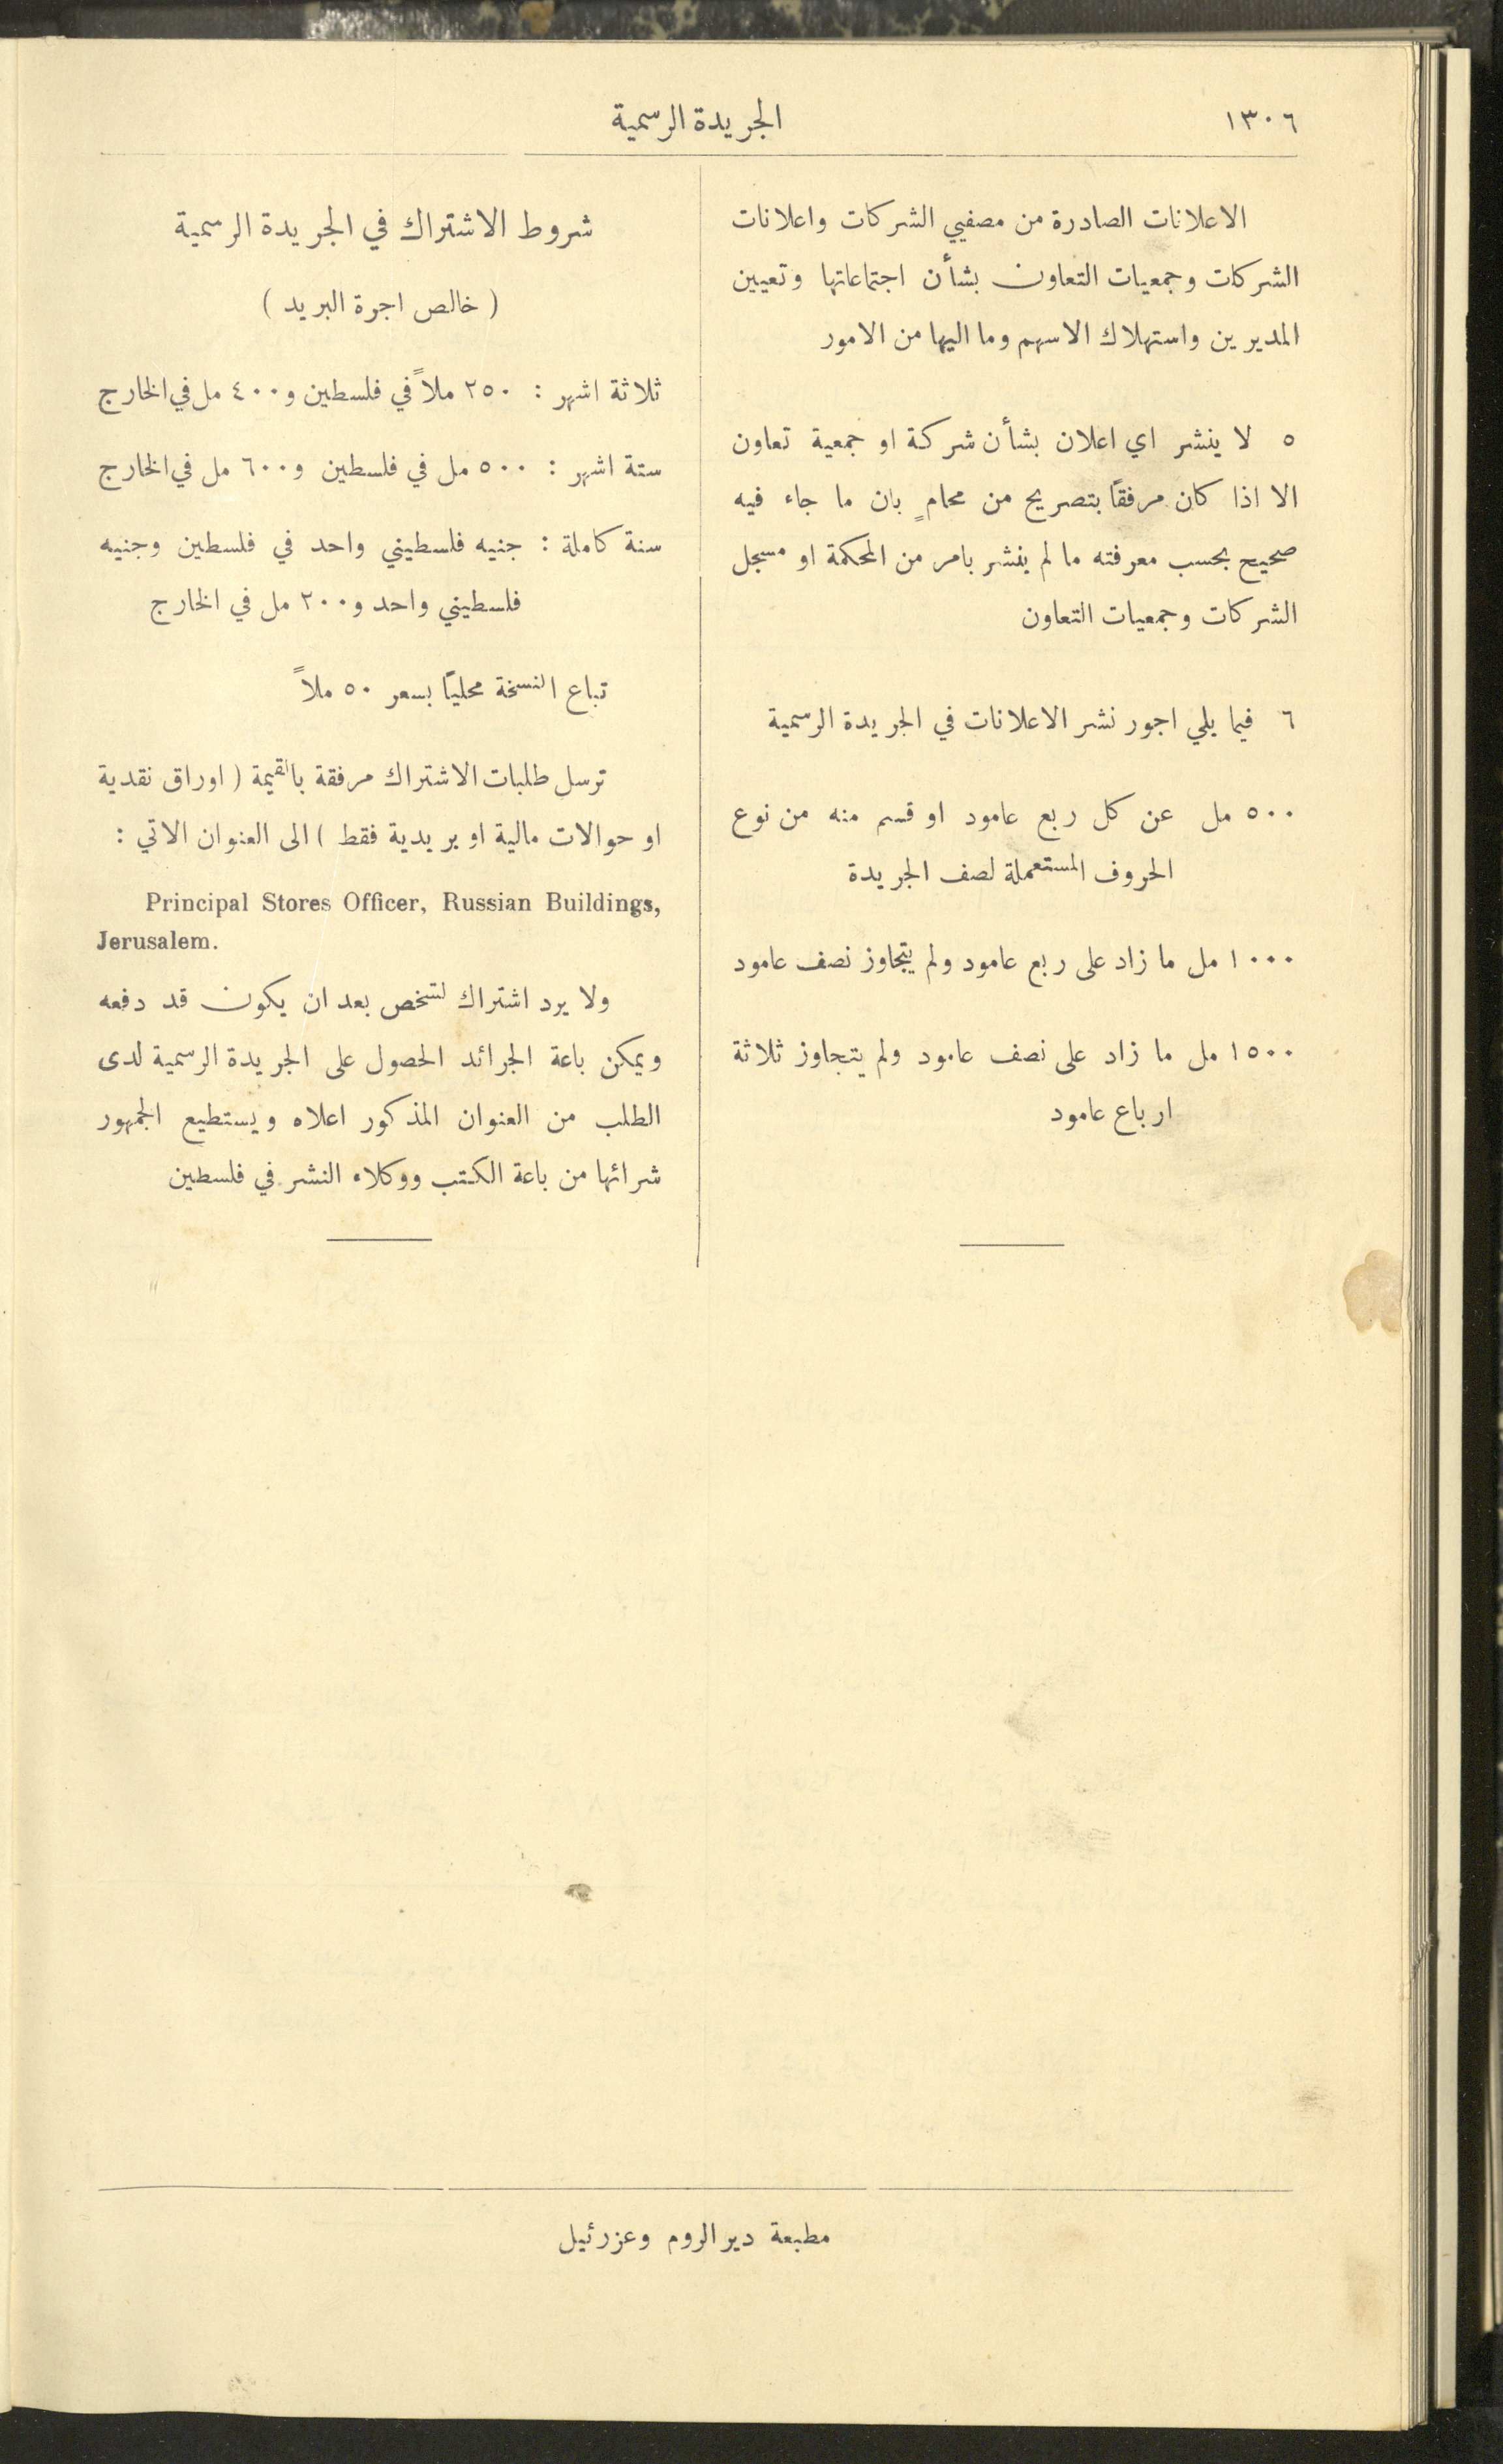 ١٣٠٦
الجريدة الرسمية
الاعلانات الصادرة من مصفيي الشركات واعلانات
الشركات وجمعيات التعاون بشأن اجتماعاتها وتعيين
المديرين واستهلاك الاسهم وما اليها من الامور
٥ لا ينشر اي اعلان بشأن شركة او جمعية تعاون
الا اذا كان مرفقًا بتصريح من محامٍ بان ما جاء فيه
صحيح بحسب معرفته ما لم ينشر بامر من المحكمة او مسجل
الشركات وجمعيات التعاون
٦ فيما يلي اجور نشر الاعلانات في الجريدة الرسمية
٥٠٠ مل عن كل ربع عامود او قسم منه من نوع
الحروف المستعملة لصف الجريدة
١٠٠٠ مل ما زاد على ربع عامود ولم يتجاوز نصف عامود
١٥٠٠ مل ما زاد على نصف عامود ولم يتجاوز ثلاثة
ارباع عامود
شروط الاشتراك في الجريدة الرسمية
( خالص اجرة البريد )
ثلاثة اشهر : ٢٥٠ ملاً في فلسطين و٤٠٠ مل في الخارج
ستة اشهر : ٥٠٠ مل في فلسطين و٦٠٠ مل في الخارج
سنة كاملة : جنيه فلسطيني واحد في فلسطين وجنيه
فلسطيني واحد و٢٠٠ مل في الخارج
تباع النسخة محليًا بسعر ٥٠ ملاً
ترسل طلبات الاشتراك مرفقة بالقيمة ( اوراق نقدية
او حوالات مالية او بريدية فقط ) الى العنوان الاتي :
Principal Stores Officer, Russian Buildings,
Jerusalem.
ولا يرد اشتراك لشخص بعد ان يكون قد دفعه
ويمكن باعة الجرائد الحصول على الجريدة الرسمية لدى
الطلب من العنوان المذكور اعلاه ويستطيع الجمهور
شرائها من باعة الكتب ووكلاء النشر في فلسطين
مطبعة دير الروم وعزرئيل